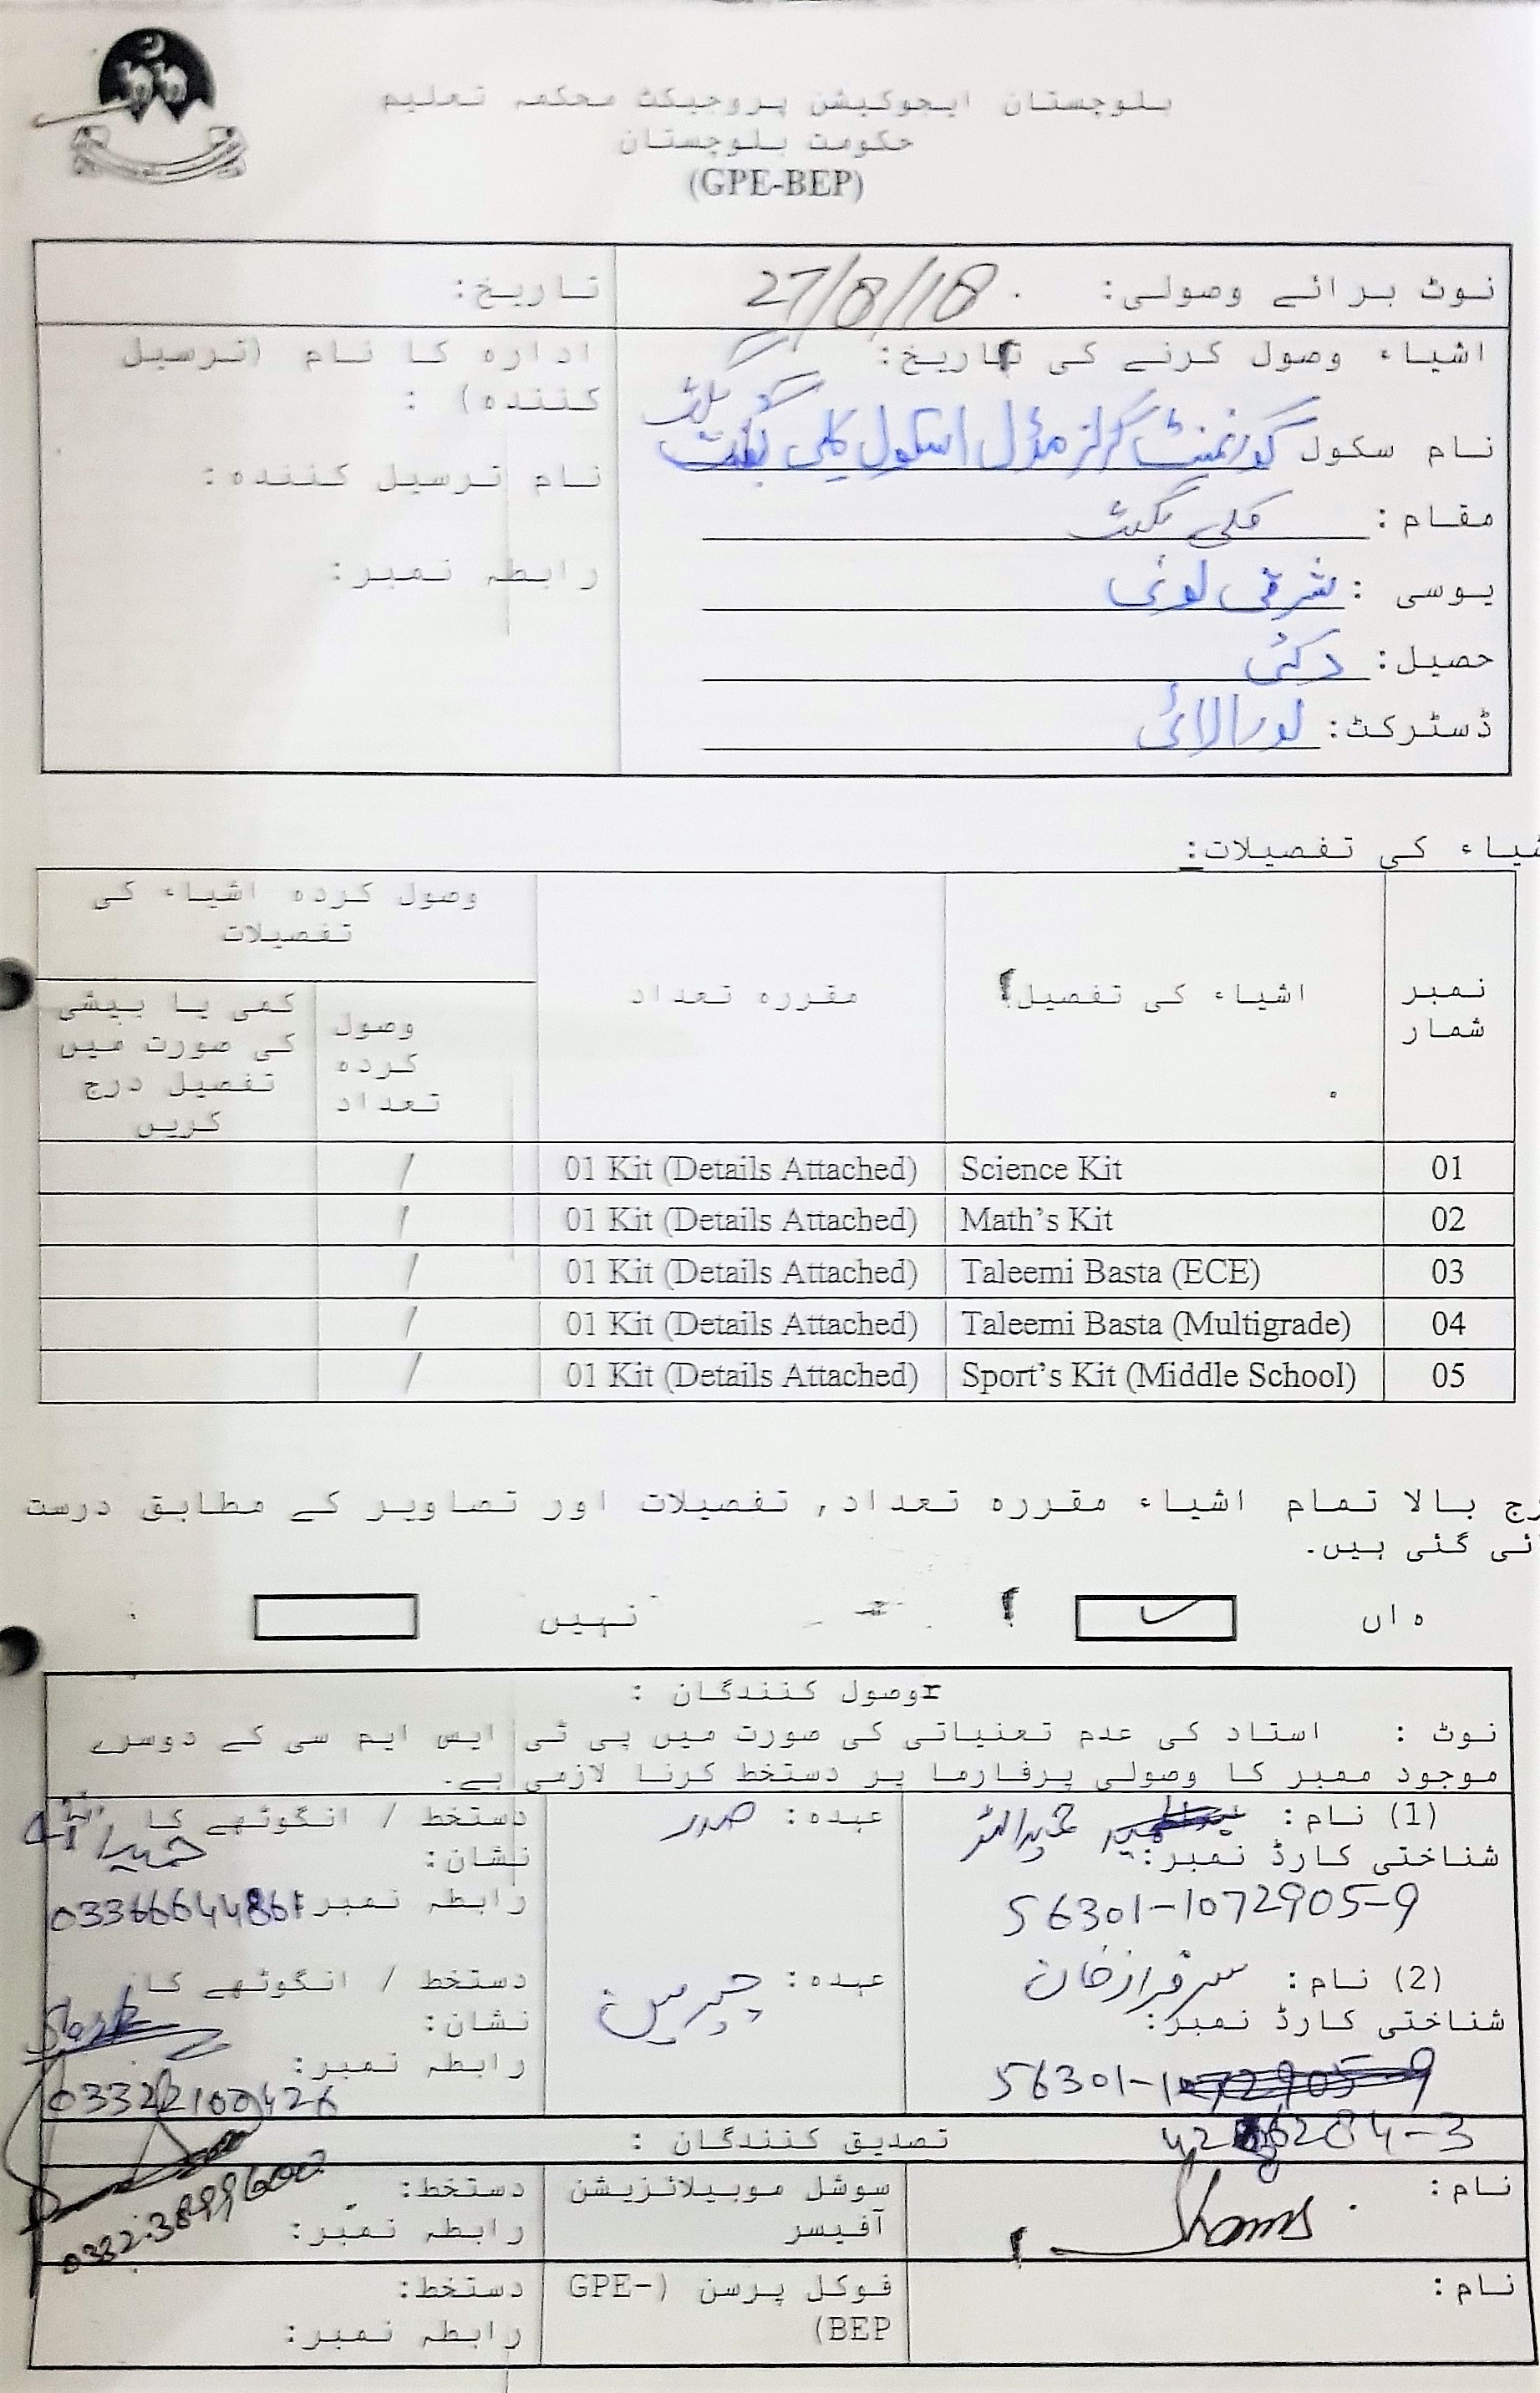 بلوچستان ایجوکیشن پروجیکٹ محکمہ تعلیم
حکومت بلوچستان
(GPE-BEP)
نوٹ برائے وصولی: 27/8/18
تاریخ:
اشیاء وصول کرنے کی تاریخ:
ادارہ کا نام (ترسیل کنندہ) :
نام سکول گورنمنٹ گرلز مڈل اسکول کلی
نام ترسیل کنندہ:
مقام: کلی
رابطہ نمبر:
یوسی : شرقی لونی
حصیل: دکی
ڈسٹرکٹ: لورالائی
شیاء کی تفصیلات:
نمبر شمار
اشیاء کی تفصیل
مقررہ تعداد
وصول کردہ اشیاء کی تفصیلات
وصول کردہ تعداد
کمی یا بیشی کی صورت میں تفصیل درج کریں
01 Science Kit 01 Kit (Details Attached) /
02 Math’s Kit 01 Kit (Details Attached) /
03 Taleemi Basta (ECE) 01 Kit (Details Attached) /
04 Taleemi Basta (Multigrade) 01 Kit (Details Attached) /
05 Sport’s Kit (Middle School) 01 Kit (Details Attached) /
رج بالا تمام اشیاء مقررہ تعداد, تفصیلات اور تصاویر کے مطابق درست
ئی گئی ہیں.
ہاں
نہیں
وصول کنندگان :
نوٹ : استاد کی عدم تعنیاتی کی صورت میں پی ٹی ایس ایم سی کے دوسرے
موجود ممبر کا وصولی پرفارما پر دستخط کرنا لازمی ہے.
(1) نام: حمیداللہ
عہدہ: صدر
دستخط / انگوٹھے کا نشان: حمیداللہ
شناختی کارڈ نمبر:
56301-1072905-9
رابطہ نمبر:
(2) نام: سرفرازخان
عہدہ: چیرمین
دستخط / انگوٹھے کا نشان:
شناختی کارڈ نمبر:
56301-
رابطہ نمبر:
تصدیق کنندگان :
نام: Shams
سوشل موبیلائزیشن آفیسر
دستخط:
رابطہ نمبر: 0332-3899600
نام:
فوکل پرسن (GPE-BEP)
دستخط:
رابطہ نمبر: